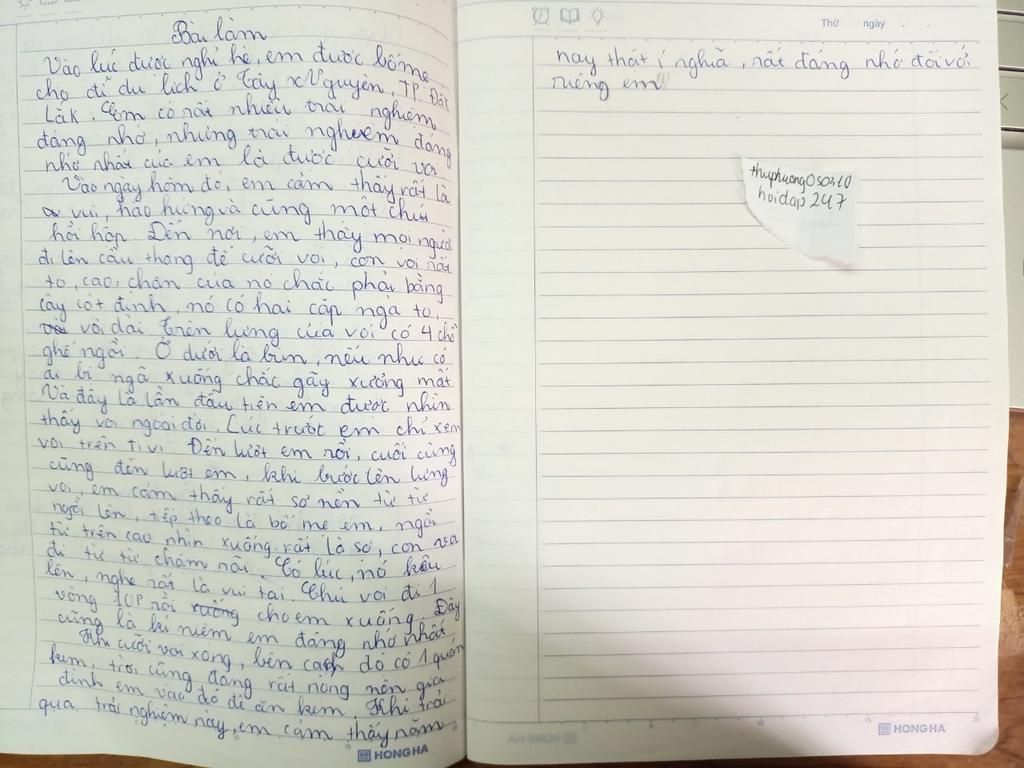 Bài làm
Vào lúc được nghỉ hè, em được bố mẹ
cho đi du lịch ở Tây Nguyên, TP. Đắk
Lăk. Em có rất nhiều trải nghiệm
đáng nhớ, nhưng trải nghiệm đáng
nhớ nhất của em là được cưỡi voi
Vào ngày hôm đó, em cảm thấy rất là
vui, hào hứng và cũng một chút
hồi hộp. Đến nơi, em thấy mọi người
đi lên cầu thang để cưỡi voi, con voi rất
to, cao, chân của nó chắc phải bằng
cây cột định, nó có hai cặp ngà to,
và dài. Trên lưng của voi có 4 chỗ
ghế ngồi. Ở dưới là bùn, nếu như có
ai bị ngã xuống chắc gãy xương mất.
Và đây là lần đầu tiên em được nhìn
thấy voi ngoài đời. Lúc trước em chỉ xem
voi trên ti vi. Đến lượt em rồi, cuối cùng
cũng đến lượt em, khi bước lên lưng
voi, em cảm thấy rất sợ nên từ từ
ngồi lên, tiếp theo là bố mẹ em, ngồi
từ trên cao nhìn xuống rất là sợ, con voi
đi từ từ chậm rãi. Có lúc, nó kêu
lên, nghe rất là vui tai. Chú voi đi 1
vòng 10P rồi xuống cho em xuống. Đây
cũng là kỉ niệm em đáng nhớ nhất.
Khi cưỡi voi xong, bên cạnh đó có 1 quán
kem, trời cũng đang rất nóng nên gia
đình em vào đó để ăn kem. Khi trải
qua trải nghiệm này, em cảm thấy năm
HONG HA
Thứ ngày
nay thật í nghĩa, rất đáng nhớ đối với
riêng em
thuphuong050310
hoidap247
HONG HA